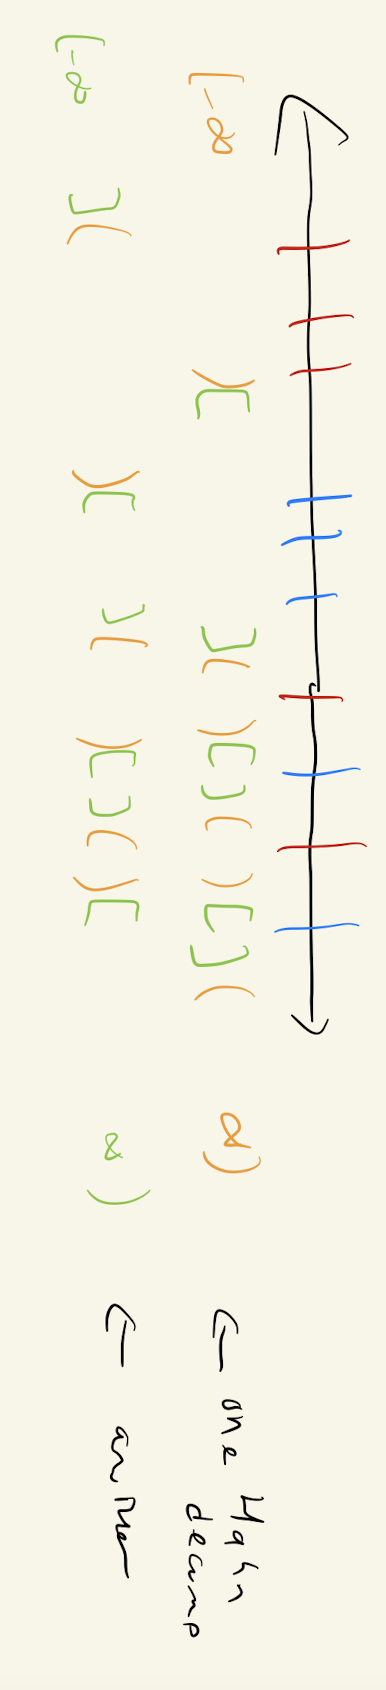 [-∞ )[ ]( )[ ]( )[ ]( ∞) ← one Hahn
decomp
[-∞ ]( )[ ]( )[ ]( )[ ∞) ← another